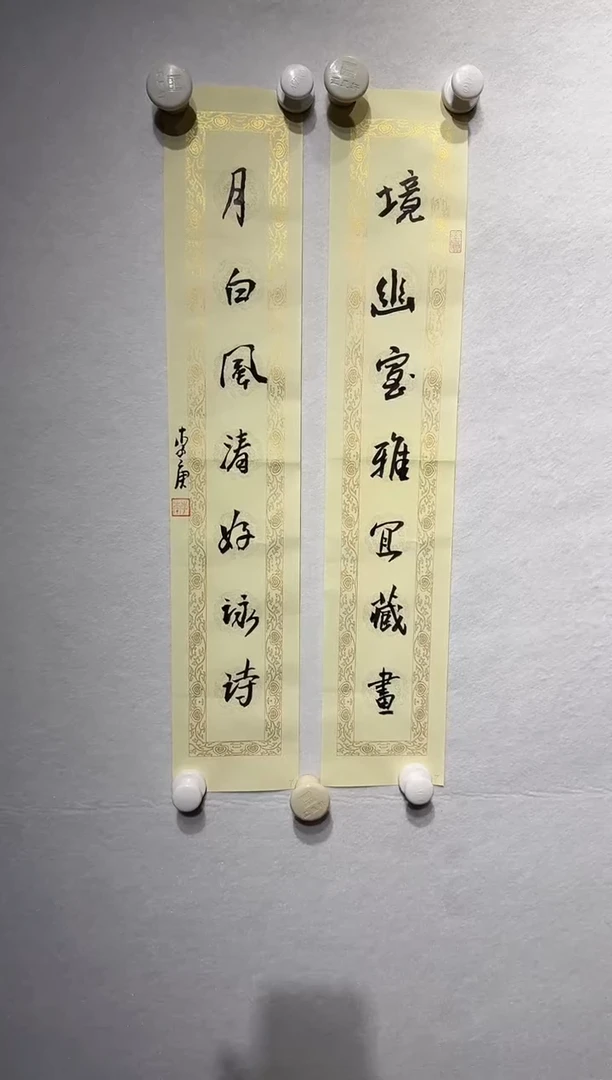 境幽室雅宜藏畫
月白風清好詠诗
李庚